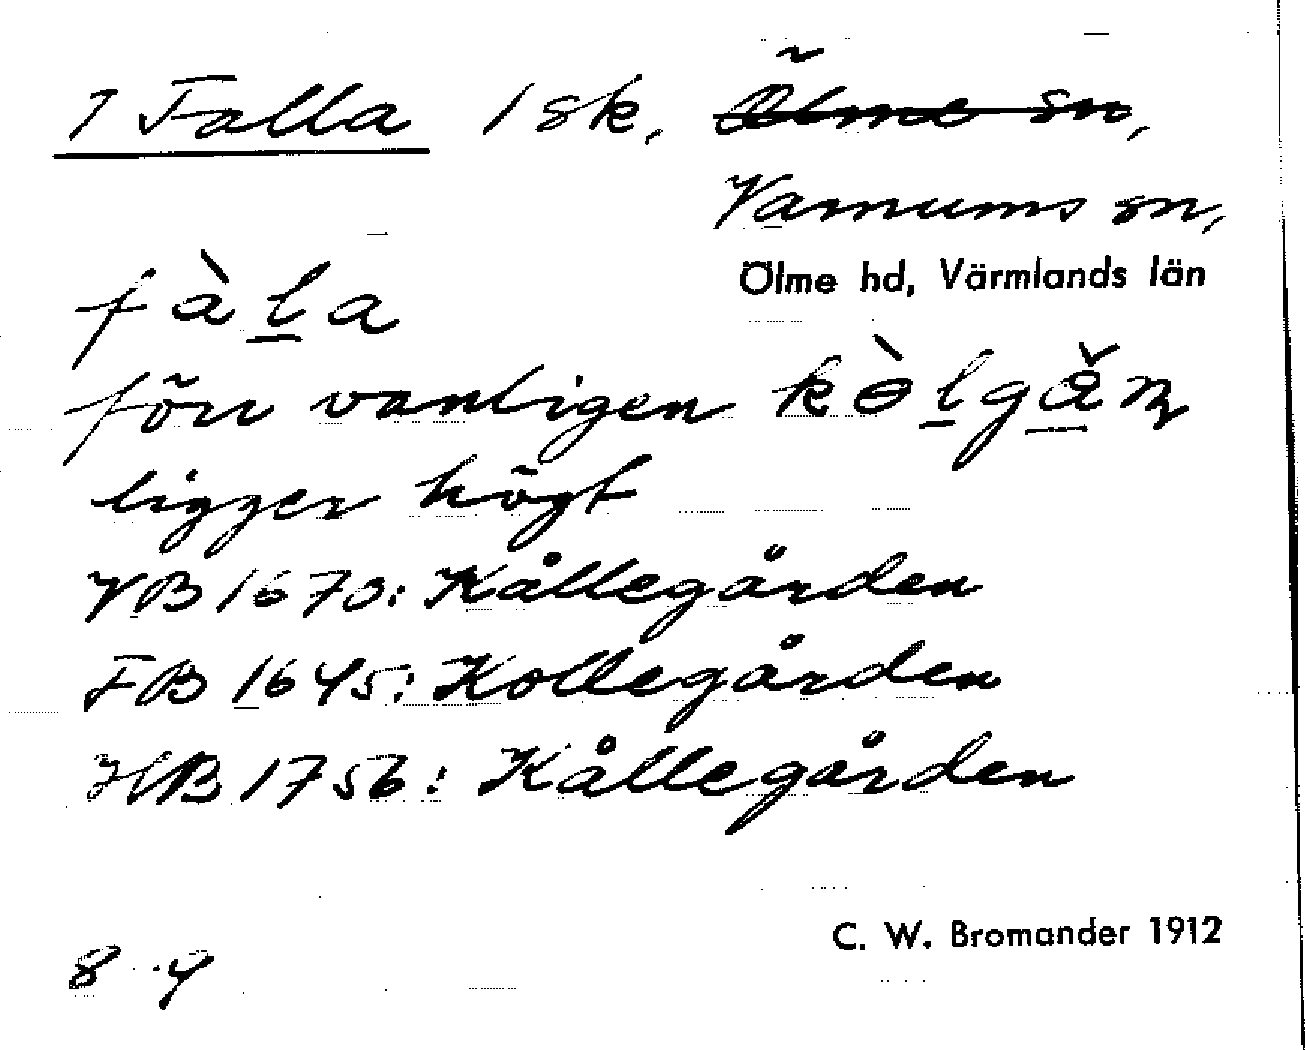 1 Falla 1 sk, Ölme sn,
Varnums sn,
Ölme hd, Värmlands län
fàl̠a
förr vanligen kòl̠gå̠̌n
ligger högt
VB 1670: Kållegården
FB 1645: Kollegården
HB 1756: Kållegården
C. W. Bromander 1912
8